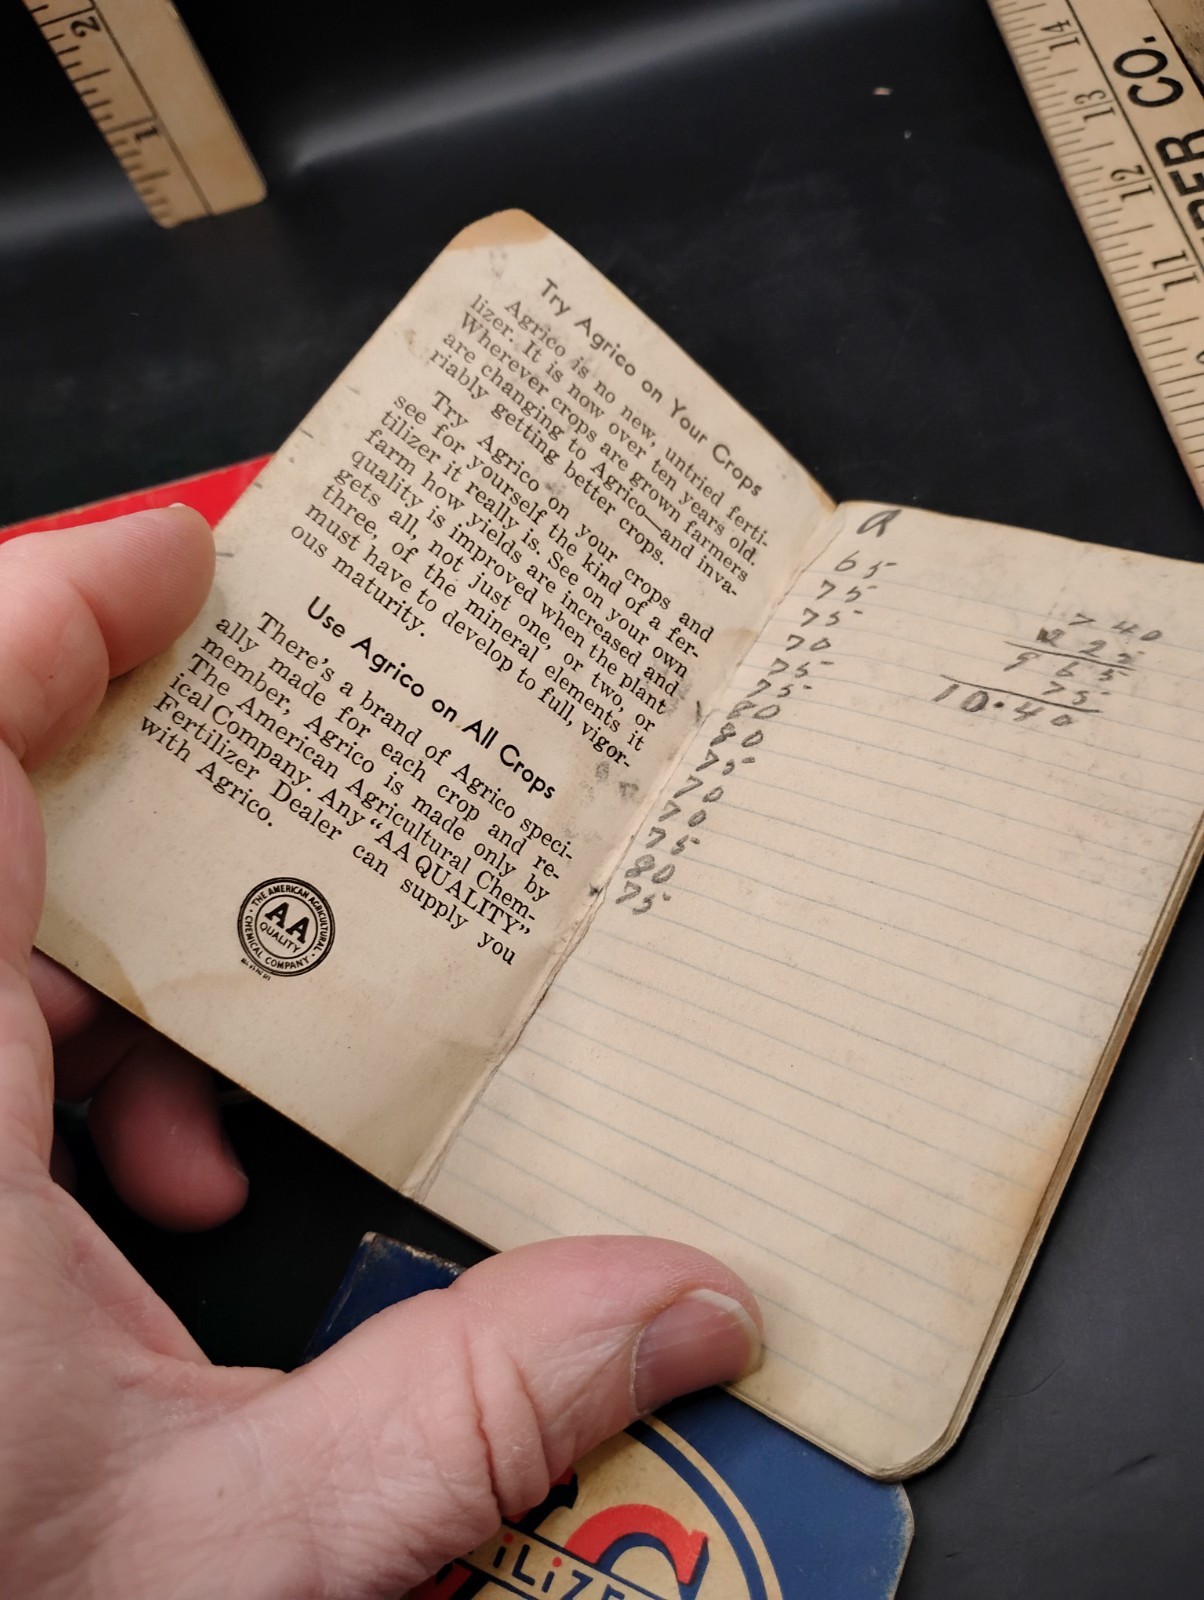 2
1
14
13
12
11
PER CO.
Try Agrico on Your Crops
Agrico is no new, untried ferti-
lizer. It is now over ten years old.
Wherever crops are grown farmers
are changing to Agrico—and inva-
riably getting better crops.
Try Agrico on your crops and
see for yourself the kind of a fer-
tilizer it really is. See on your own
farm how yields are increased and
quality is improved when the plant
gets all, not just one, or two, or
three, of the mineral elements it
must have to develop to full, vigor-
ous maturity.
Use Agrico on All Crops
There's a brand of Agrico speci-
ally made for each crop and re-
member, Agrico is made only by
The American Agricultural Chem-
ical Company. Any "AA QUALITY"
Fertilizer Dealer can supply you
with Agrico.
THE AMERICAN AGRICULTURAL
AA
QUALITY
CHEMICAL COMPANY
65
75
75
70
75
75
80
80
75
70
70
75
80
75
740
222
965
75
10.40